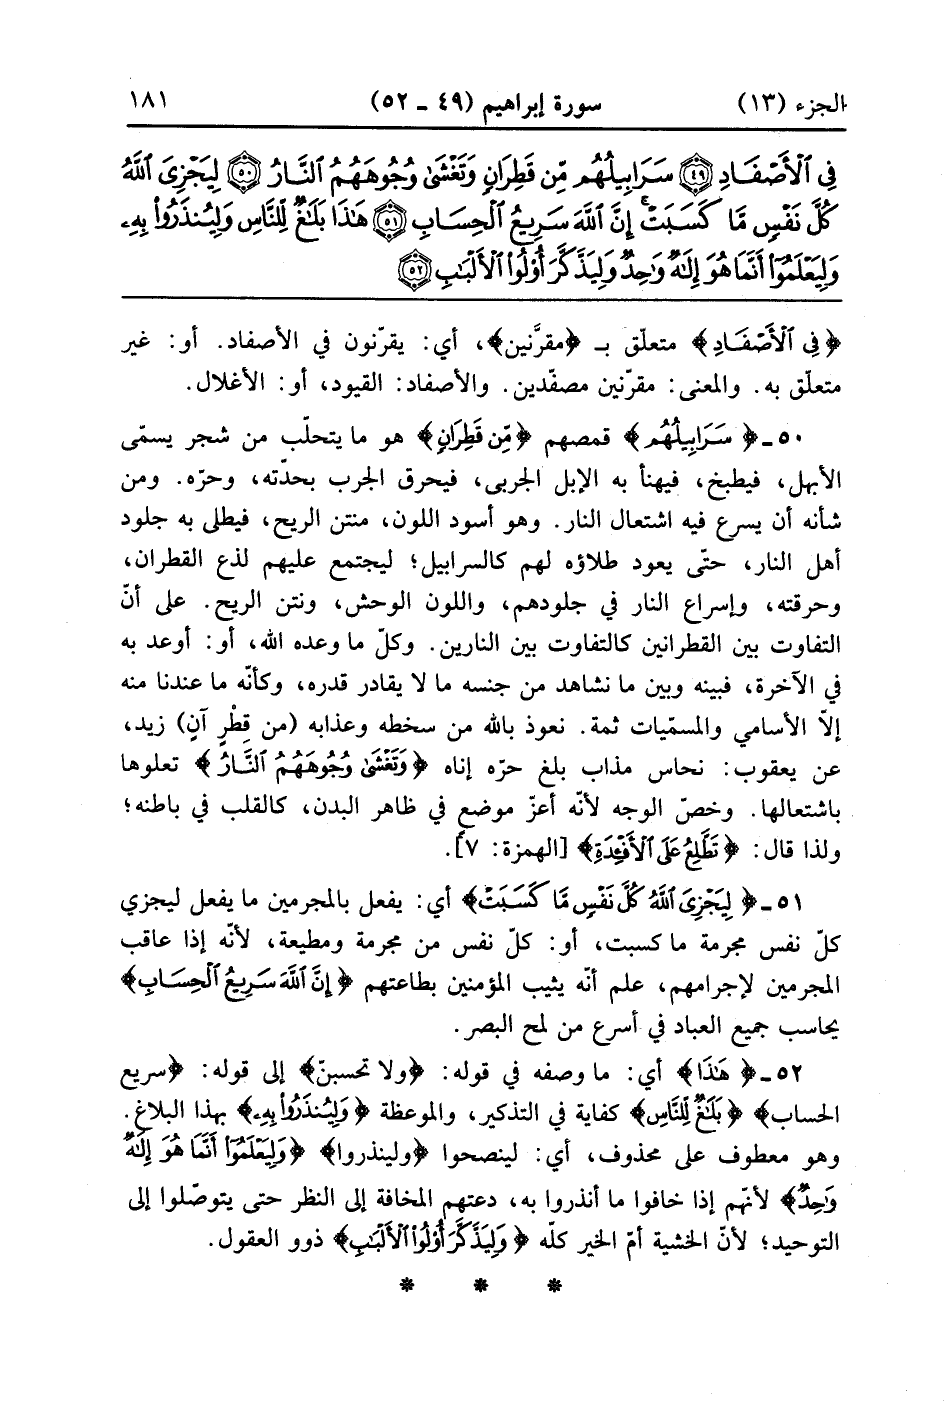 الجزء (١٣) سورة إبراهيم (٤٩ ـ ٥٢) ١٨١
فِي ٱلْأَصْفَادِ ۝٤٩ سَرَابِيلُهُم مِّن قَطِرَانٍ وَتَغْشَىٰ وُجُوهَهُمُ ٱلنَّارُ ۝٥٠ لِيَجْزِيَ ٱللَّهُ
كُلَّ نَفْسٍ مَّا كَسَبَتْ ۚ إِنَّ ٱللَّهَ سَرِيعُ ٱلْحِسَابِ ۝٥١ هَٰذَا بَلَٰغٌ لِّلنَّاسِ وَلِيُنذَرُواْ بِهِۦ
وَلِيَعْلَمُوٓاْ أَنَّمَا هُوَ إِلَٰهٌ وَٰحِدٌ وَلِيَذَّكَّرَ أُوْلُواْ ٱلْأَلْبَٰبِ ۝٥٢
﴿فِي ٱلْأَصْفَادِ﴾ متعلّق بـ ﴿مقرَّنين﴾، أي: يقرّنون في الأصفاد. أو: غير
متعلّق به. والمعنى: مقرّنين مصفّدين. والأصفاد: القيود، أو: الأغلال.
٥٠ـ ﴿سَرَابِيلُهُم﴾ قمصهم ﴿مِّن قَطِرَانٍ﴾ هو ما يتحلّب من شجر يسمّى
الأبهل، فيطبخ، فيهنأ به الإبل الجربى، فيحرق الجرب بحدّته، وحرّه. ومن
شأنه أن يسرع فيه اشتعال النار. وهو أسود اللون، منتن الريح، فيطلى به جلود
أهل النار، حتّى يعود طلاؤه لهم كالسرابيل؛ ليجتمع عليهم لذع القطران،
وحرقته، وإسراع النار في جلودهم، واللون الوحش، ونتن الريح. على أنّ
التفاوت بين القطرانين كالتفاوت بين النارين. وكلّ ما وعده الله، أو: أوعد به
في الآخرة، فبينه وبين ما نشاهد من جنسه ما لا يقادر قدره، وكأنّه ما عندنا منه
إلاّ الأسامي والمسمّيات ثمة. نعوذ بالله من سخطه وعذابه (من قطْرٍ آنٍ) زيد،
عن يعقوب: نحاس مذاب بلغ حرّه إناه ﴿وَتَغْشَىٰ وُجُوهَهُمُ ٱلنَّارُ﴾ تعلوها
باشتعالها. وخصّ الوجه لأنّه أعزّ موضع في ظاهر البدن، كالقلب في باطنه؛
ولذا قال: ﴿تَطَّلِعُ عَلَى ٱلْأَفْـِٔدَةِ﴾ [الهمزة: ٧].
٥١ـ ﴿لِيَجْزِيَ ٱللَّهُ كُلَّ نَفْسٍ مَّا كَسَبَتْ﴾ أي: يفعل بالمجرمين ما يفعل ليجزي
كلّ نفس مجرمة ما كسبت، أو: كلّ نفس من مجرمة ومطيعة، لأنّه إذا عاقب
المجرمين لإجرامهم، علم أنّه يثيب المؤمنين بطاعتهم ﴿إِنَّ ٱللَّهَ سَرِيعُ ٱلْحِسَابِ﴾
يحاسب جميع العباد في أسرع من لمح البصر.
٥٢ـ ﴿هَٰذَا﴾ أي: ما وصفه في قوله: ﴿ولا تحسبنّ﴾ إلى قوله: ﴿سريع
الحساب﴾ ﴿بَلَٰغٌ لِّلنَّاسِ﴾ كفاية في التذكير، والموعظة ﴿وَلِيُنذَرُواْ بِهِۦ﴾ بهذا البلاغ.
وهو معطوف على محذوف، أي: لينصحوا ﴿ولينذروا﴾ ﴿وَلِيَعْلَمُوٓاْ أَنَّمَا هُوَ إِلَٰهٌ
وَٰحِدٌ﴾ لأنّهم إذا خافوا ما أنذروا به، دعتهم المخافة إلى النظر حتى يتوصّلوا إلى
التوحيد؛ لأنّ الخشية أمّ الخير كلّه ﴿وَلِيَذَّكَّرَ أُوْلُواْ ٱلْأَلْبَٰبِ﴾ ذوو العقول.
* * *